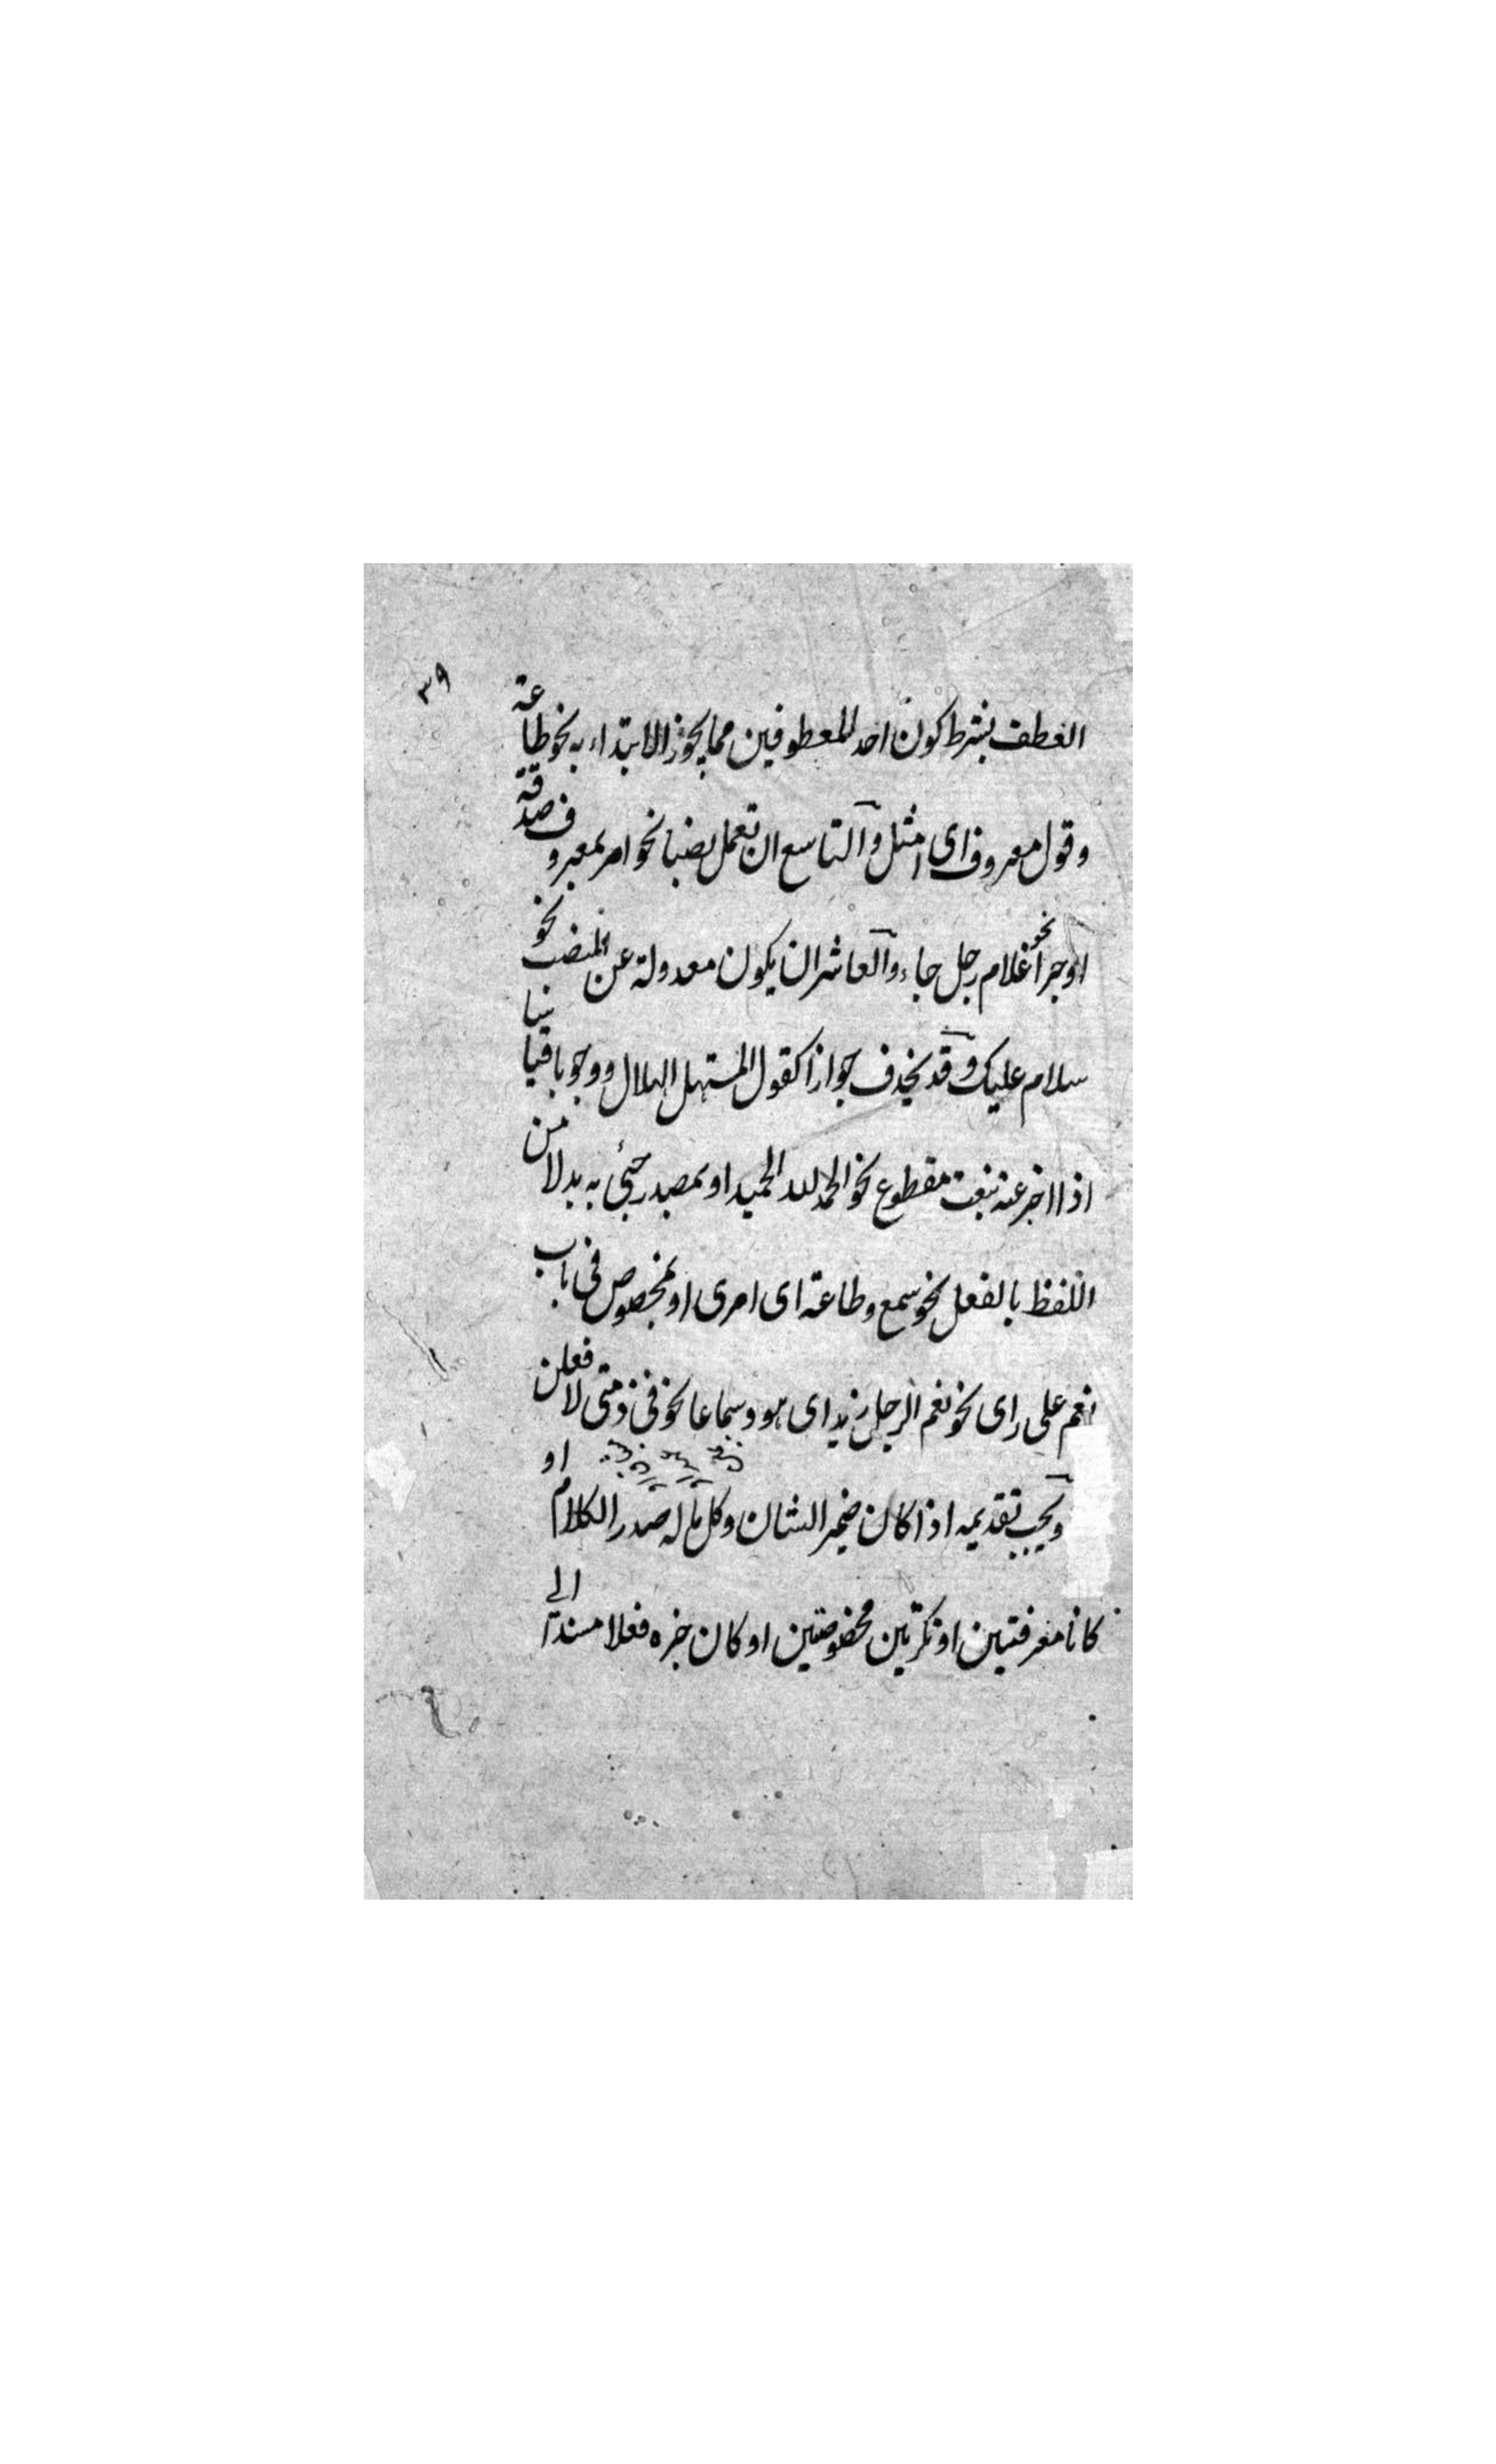 ٣٩
العطف بشرط كون احد المعطوفين مما يجوز الابتداء به نحو طاعة
وقول معروف اى امثل والتاسع ان تعمل نصبا نحو امر بمعروف صدقة
او جرا نحو غلام رجل جاء والعاشر ان يكون معدولة عن النصب نحو
سلام عليك وقد يحذف جوازا كقول المستهل الهلال ووجوبا قياسا
اذا اخبر عنه بنعت مقطوع نحو الحمد لله الحميد او بمصدر جئ به بدلا من
اللفظ بالفعل نحو سمع وطاعة اى امرى او بمخصوص فى باب
نعم على راى نحو نعم الرجل زيد اى هو وسماعا نحو فى ذمتى لافعلن
ويجب تقديمه اذا كان ضمير الشان وكل ما له صدر الكلام او
كانا معرفتين او نكرتين مخصوصتين او كان خبره فعلا مسندا الى